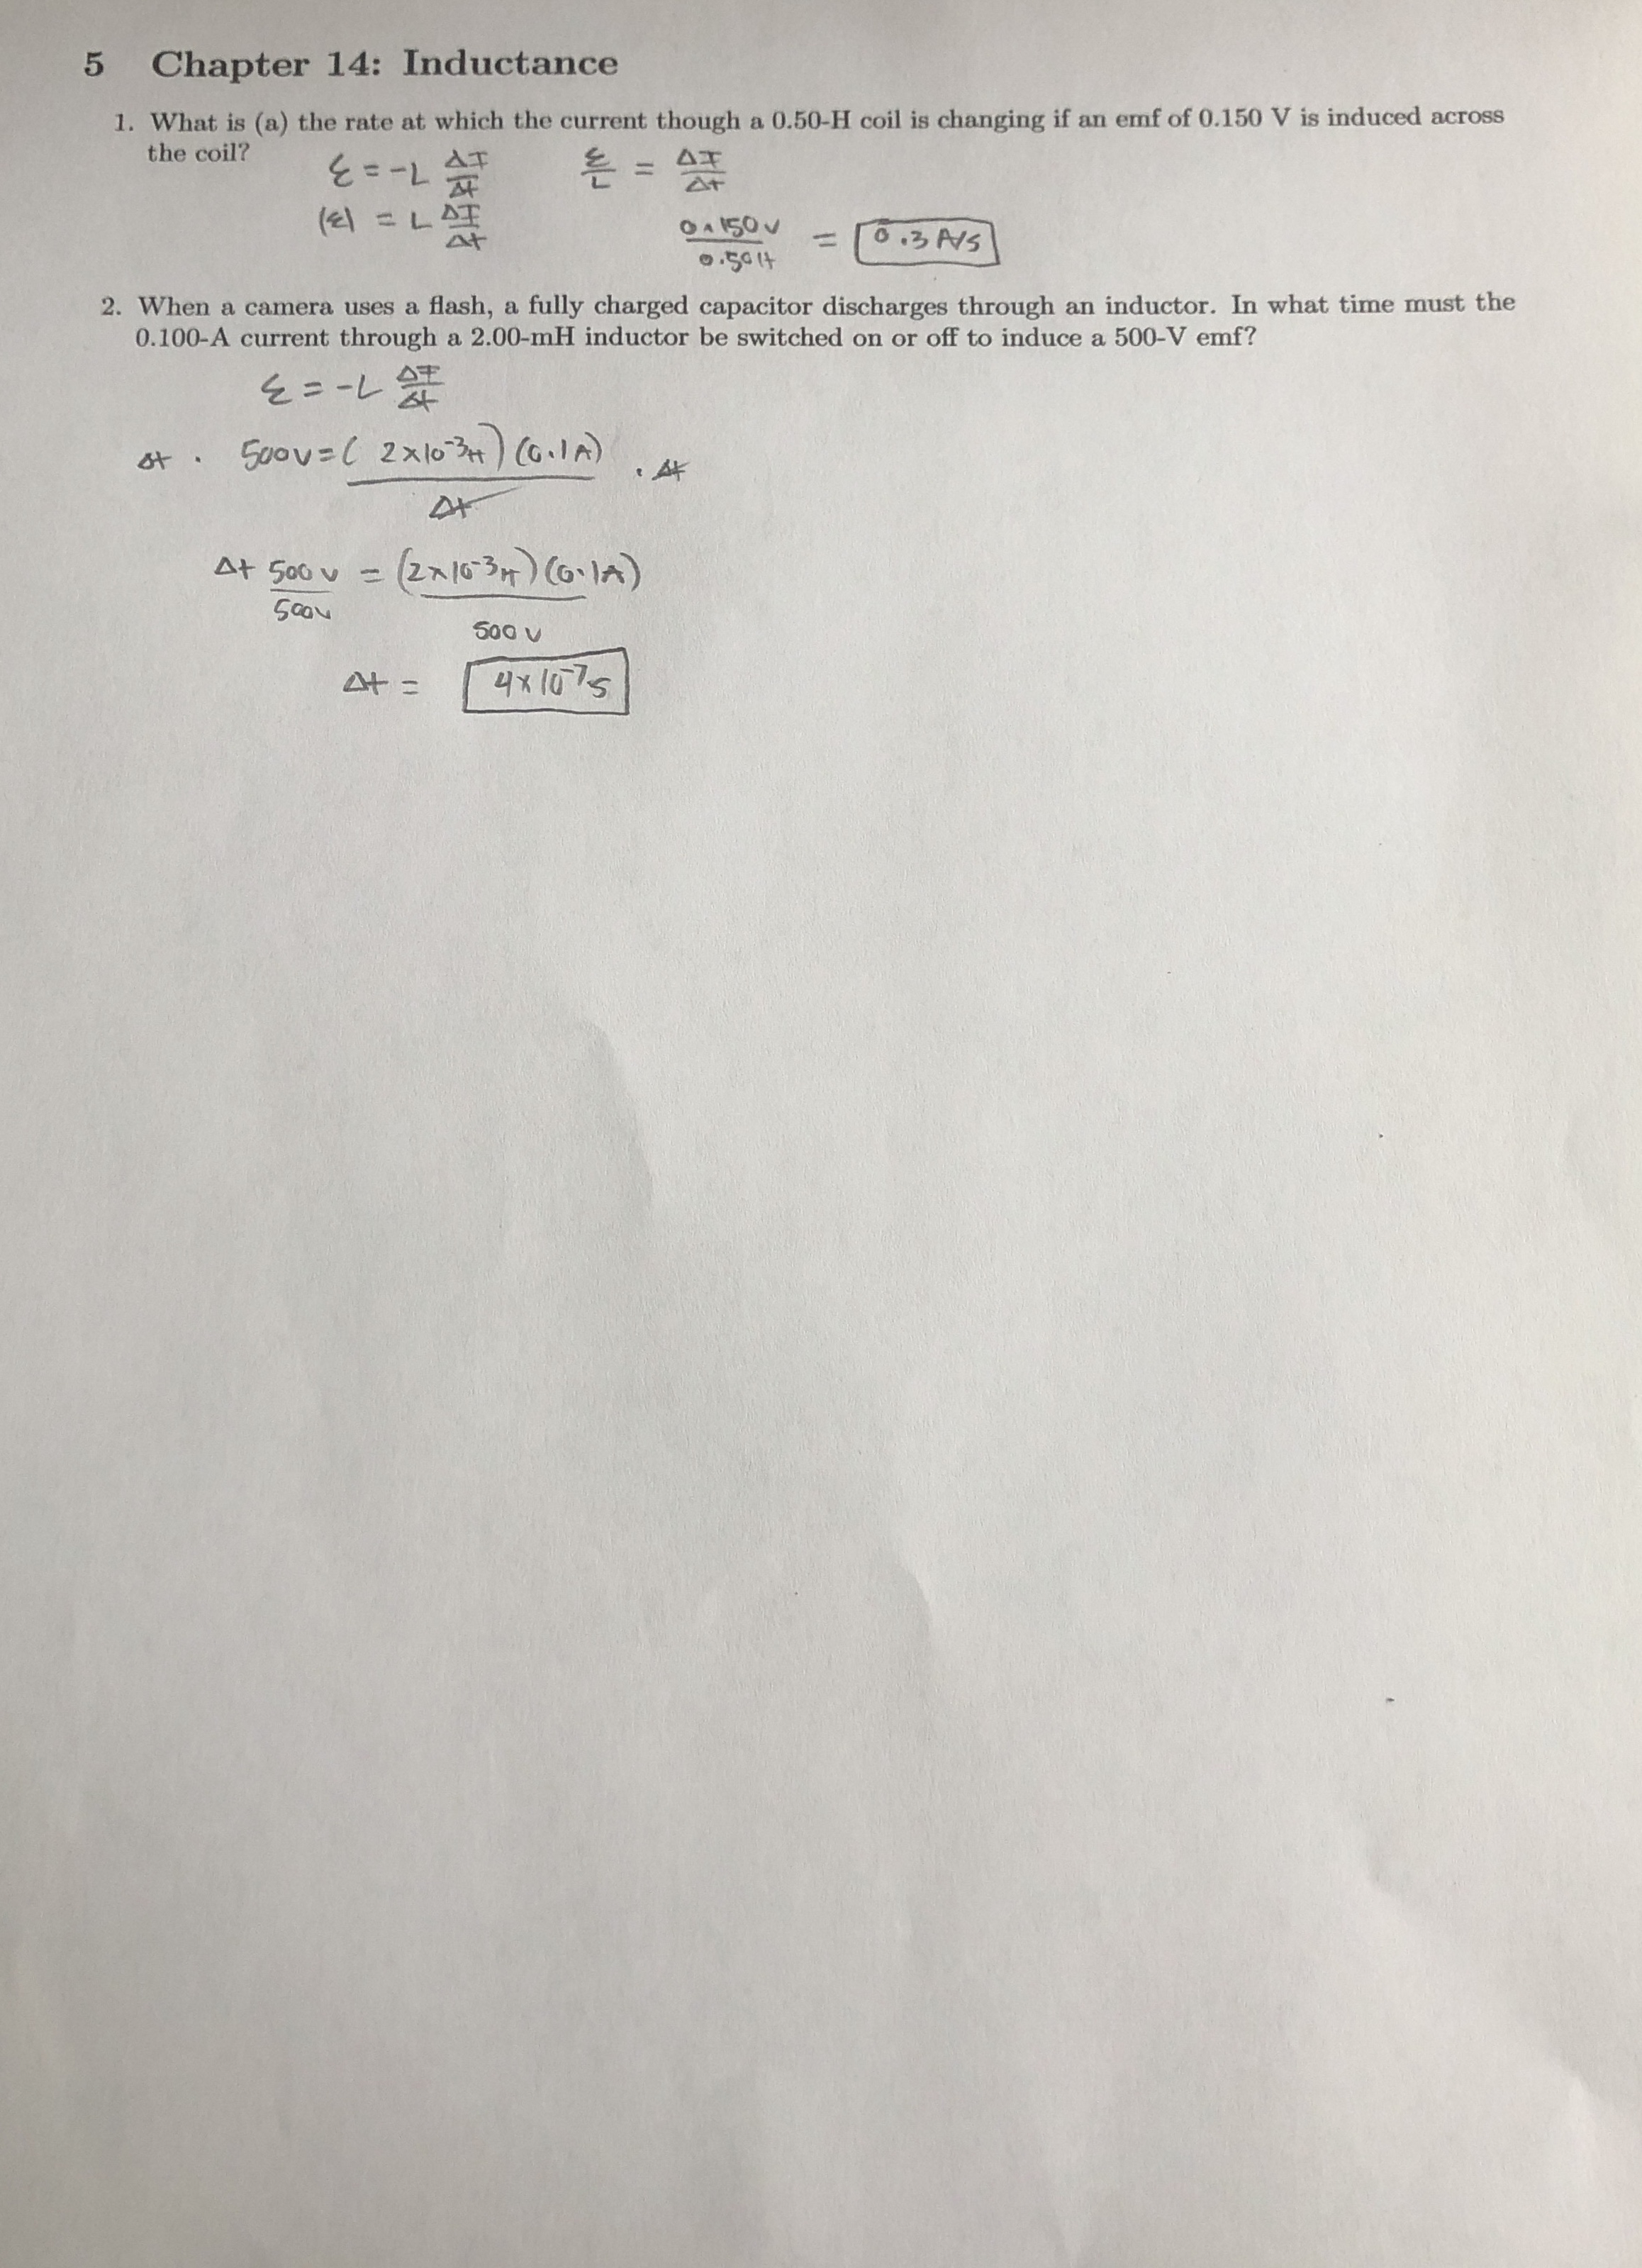 5 Chapter 14: Inductance
1. What is (a) the rate at which the current though a 0.50-H coil is changing if an emf of 0.150 V is induced across
the coil?
ε = -L ΔI/Δt    ε/L = ΔI/Δt
|ε| = L ΔI/Δt    0.150V/0.50H = 0.3 A/s
2. When a camera uses a flash, a fully charged capacitor discharges through an inductor. In what time must the
0.100-A current through a 2.00-mH inductor be switched on or off to induce a 500-V emf?
ε = -L ΔI/Δt
Δt · 500V = (2×10⁻³H)(0.1A)/Δt · Δt
Δt 500V/500V = (2×10⁻³H)(0.1A)/500V
Δt = 4×10⁻⁷s